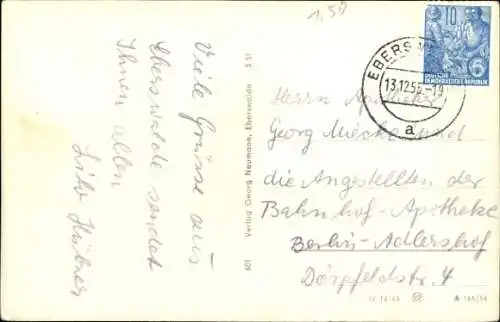 1,50
Viele Grüsse aus
Eberswalde sendet
Ihnen allen
Hübner
601 Verlag Georg Neumann, Eberswalde S 51
10
DEUTSCHE DEMOKRATISCHE REPUBLIK
EBERSW
13.12.55.-19
a
Herrn Apotheker
Georg Miecke und
die Angestellten der
Bahnhof-Apotheke
Berlin-Adlershof
Dörpfeldstr. 4
A 165/54